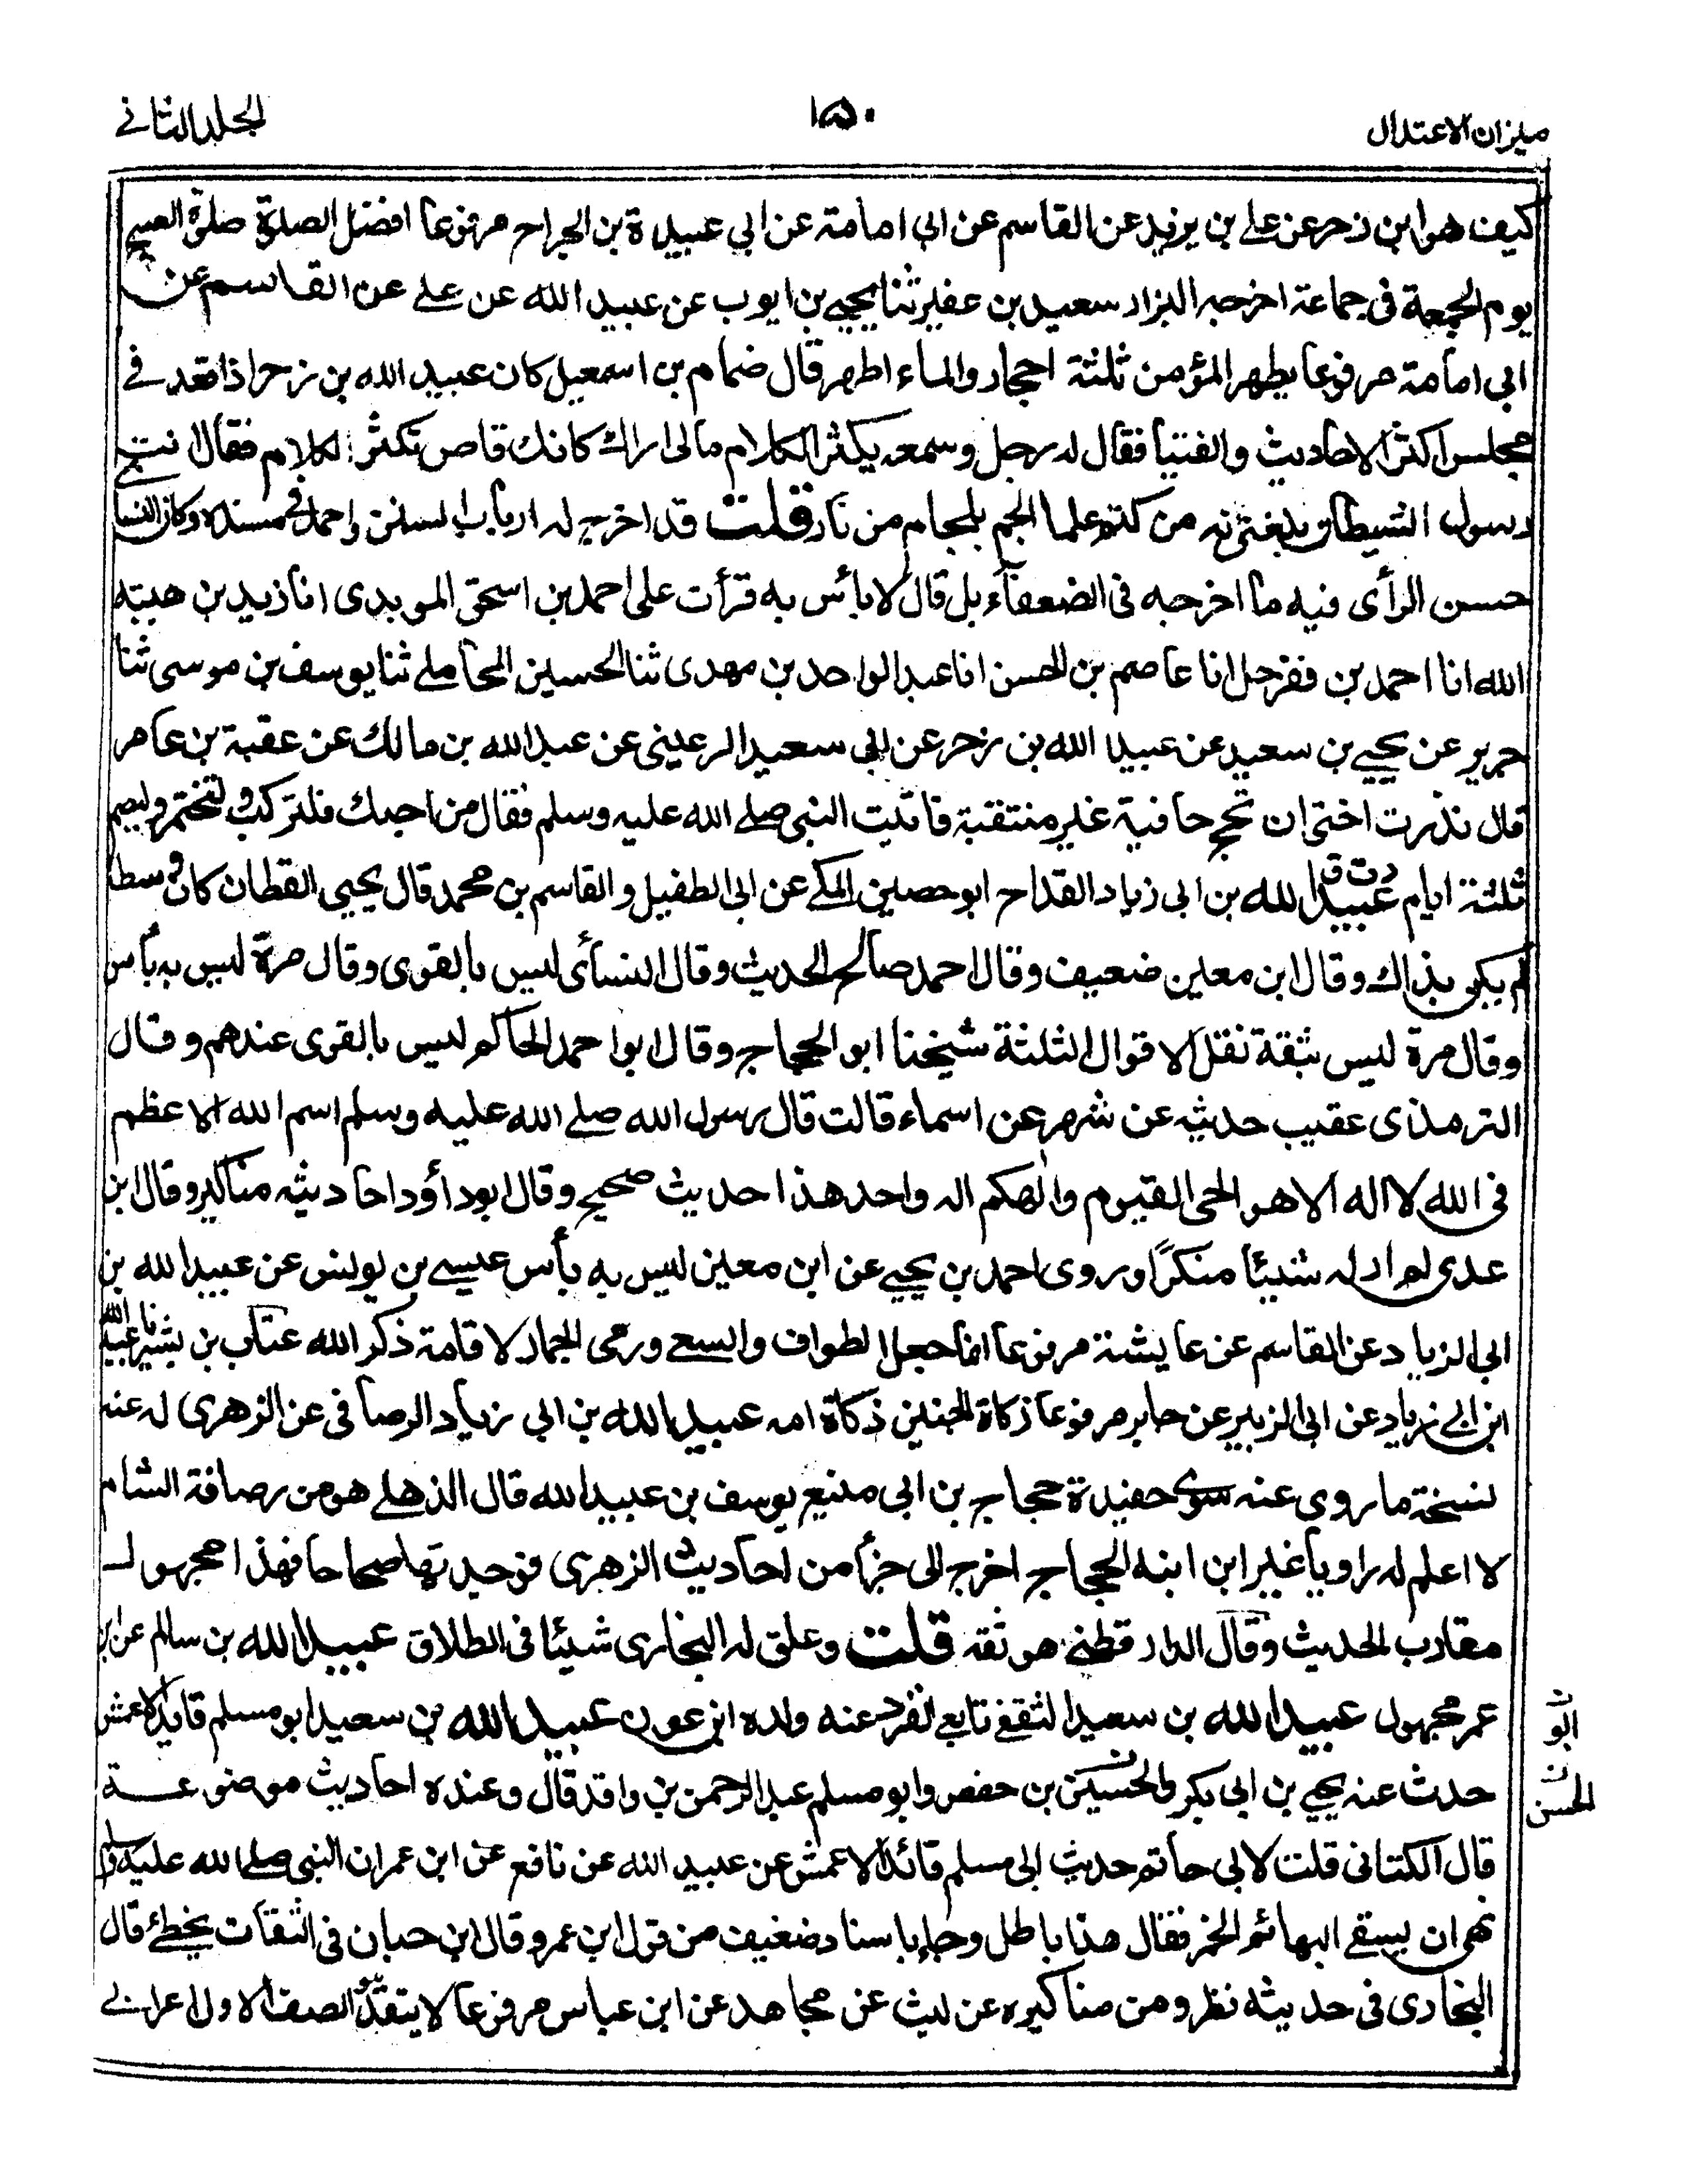 ميزان الاعتدال
١٥٠
الجلد الثانے
كيف هو ابن زحر عن علے بن يزيد عن القاسم عن ابى امامة عن ابي عبيدة بن الجراح مرفوعا افضل الصلوة صلوة الصبح
يوم الجمعة فى جماعة اخرجه البزار سعيد بن عفير ثنا يحيے بن ايوب عن عبيد الله عن علے عن القاسم عن
ابى امامة مرفوعا يطهر المؤمن ثلثة احجار والماء اطهر قال ضمام بن اسمعيل كان عبيد الله بن زحر اذا قعد فے
مجلس اكثر الاحاديث والفتيا فقال له رجل وسمعه يكثر الكلام مالى اراك كانك قاص تكثر الكلام فقال انت
رسول الشيطان بلغنى انه من كتم علما الجم بلجام من نار قلت قد اخرج له ارباب السنن واحمد فے مسنده وكان النسا
حسن الرأى فيه ما اخرجه فى الضعفاء بل قال لا بأس به قرأت على احمد بن اسحق المويدى انا زيد بن هبة
الله انا احمد بن قفرجل انا عاصم بن الحسن انا عبد الواحد بن مهدى ثنا الحسين المحاملے ثنا يوسف بن موسى ثنا
جرير عن يحيے بن سعيد عن عبيد الله بن زحر عن ابى سعيد الرعينى عن عبد الله بن مالك عن عقبة بن عامر
قال نذرت اختى ان تحج حافية غير منتقبة فاتيت النبى صلے الله عليه وسلم فقال من اجلك فلتركب ولتختمر وليصم
ثلثة ايام د ت ق عبيد الله بن ابى زياد القداح ابو حصين المكے عن ابى الطفيل والقاسم بن محمد قال يحيى القطان كان وسطا
لم يكن بذاك وقال ابن معين ضعيف وقال احمد صالح الحديث وقال النسأى ليس بالقوى وقال مرة ليس به بأس
وقال مرة ليس بثقة نقل الاقوال الثلثة شيخنا ابو الحجاج وقال ابو احمد الحاكم ليس بالقوى عندهم وقال
الترمذى عقيب حديثه عن شهر عن اسماء قالت قال رسول الله صلے الله عليه وسلم اسم الله الاعظم
فى الله لا اله الا هو الحى القيوم والهكم اله واحد هذا حديث صحيح وقال ابو داؤد احاديثه مناكير وقال ابن
عدى لم ار له شيئا منكرًا وروى احمد بن يحيے عن ابن معين ليس به بأس عيسے بن يونس عن عبيد الله بن
ابى الزياد عن القاسم عن عايشة مرفوعا انما جعل الطواف والسعے ورمى الجمار لاقامة ذكر الله عتاب بن بشير نا عبيد الله
ابن ابے زياد عن ابى الزبير عن جابر مرفوعا زكاة الجنين ذكاة امه عبيد الله بن ابى زياد الرصافى عن الزهرى له عنه
نسخة ما روى عنه سوى حفيدة حجاج بن ابى منيع يوسف بن عبيد الله قال الذهلے هو من رصافة الشام
لا اعلم له راويا غير ابن ابنه الحجاج اخرج الى جزأ من احاديث الزهرى فوجدتها صحاحا فهذا مجهول
مقارب الحديث وقال الدارقطنے هو ثقة قلت وعلق له البخارى شيئا فى الطلاق عبيد الله بن سالم عن ابن
عمر مجهول عبيد الله بن سعيد الثقفے تابعے تفرد عنه ولده ابن عون عبيد الله بن سعيد ابو مسلم قايد الاعمش
حدث عنه يحيے بن ابى بكر والحسين بن حفص وابو مسلم عبد الرحمن بن واقد قال وعنده احاديث موضوعة
قال الكتانى قلت لابى حاتم حديث ابى مسلم قائد الاعمش عن عبيد الله عن نافع عن ابن عمر ان النبى صلے الله عليه وسلم
نهى ان يسقے البهائم الخمر فقال هذا باطل وجاء باسناد ضعيف من قول ابن عمر وقال ابن حبان فى الثقات يخطئ قال
البخارى فى حديثه نظر ومن مناكيره عن ليث عن مجاهد عن ابن عباس مرفوعا لا يتقدم الصف الاول اعرابے
ابو
الحسن